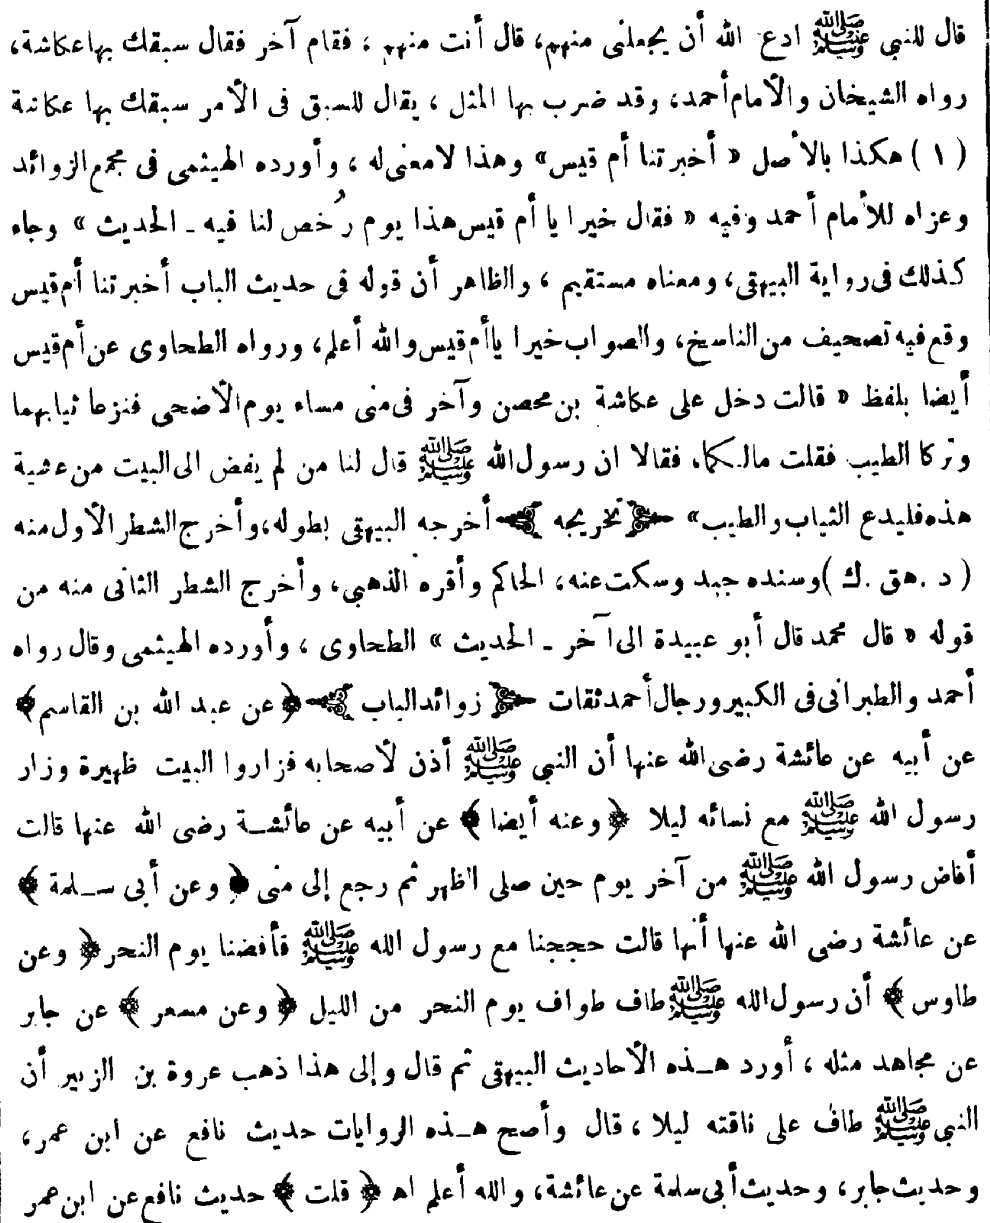 قال للنبي ﷺ ادع الله أن يجعلني منهم، قال أنت منهم ، فقام آخر فقال سبقك بها عكاشة،
رواه الشيخان والأمام أحمد، وقد ضرب بها المثل ، يقال للسبق في الأمر سبقك بها عكاشة
( ١ ) هكذا بالأصل « أخبرتنا أم قيس» وهذا لامعنى له ، وأورده الهيثمي في مجمع الزوائد
وعزاه للأمام أحمد وفيه « فقال خيرا يا أم قيس هذا يوم رُخص لنا فيه ـ الحديث » وجاء
كذلك في رواية البيهقي، ومعناه مستقيم ، والظاهر أن قوله في حديث الباب أخبرتنا أم قيس
وقع فيه تصحيف من الناسخ، والصواب خيرا يا أم قيس والله أعلم، ورواه الطحاوي عن أم قيس
أيضا بلفظ « قالت دخل على عكاشة بن محصن وآخر في منى مساء يوم الأضحى فنزعا ثيابهما
وتركا الطيب فقلت مالكما، فقالا ان رسول الله ﷺ قال لنا من لم يفض الى البيت من عشية
هذه فليدع الثياب والطيب» تخريجه أخرجه البيهقي بطوله، وأخرج الشطر الأول منه
( د . هق . ك ) وسنده جيد وسكت عنه، الحاكم وأقره الذهبي، وأخرج الشطر الثاني منه من
قوله « قال محمد قال أبو عبيدة الى آخر ـ الحديث » الطحاوي ، وأورده الهيثمي وقال رواه
أحمد والطبراني في الكبير ورجال أحمد ثقات زوائد الباب ﴿عن عبد الله بن القاسم﴾
عن أبيه عن عائشة رضى الله عنها أن النبي ﷺ أذن لأصحابه فزاروا البيت ظهيرة وزار
رسول الله ﷺ مع نسائه ليلا ﴿وعنه أيضا﴾ عن أبيه عن عائشة رضى الله عنها قالت
أفاض رسول الله ﷺ من آخر يوم حين صلى الظهر ثم رجع إلى منى ﴿وعن أبي سلمة﴾
عن عائشة رضى الله عنها أنها قالت حججنا مع رسول الله ﷺ فأفضنا يوم النحر ﴿وعن
طاوس﴾ أن رسول الله ﷺ طاف طواف يوم النحر من الليل ﴿وعن مسعر﴾ عن جابر
عن مجاهد مثله ، أورد هذه الأحاديث البيهقي ثم قال وإلى هذا ذهب عروة بن الزبير أن
النبي ﷺ طاف على ناقته ليلا ، قال وأصح هذه الروايات حديث نافع عن ابن عمر،
وحديث جابر، وحديث أبي سلمة عن عائشة، والله أعلم اه ﴿قلت﴾ حديث نافع عن ابن عمر